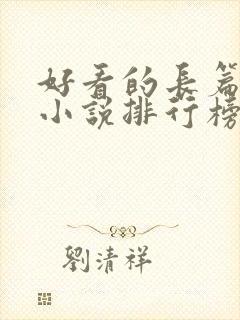 好看的長篇
小說排行榜
劉清祥